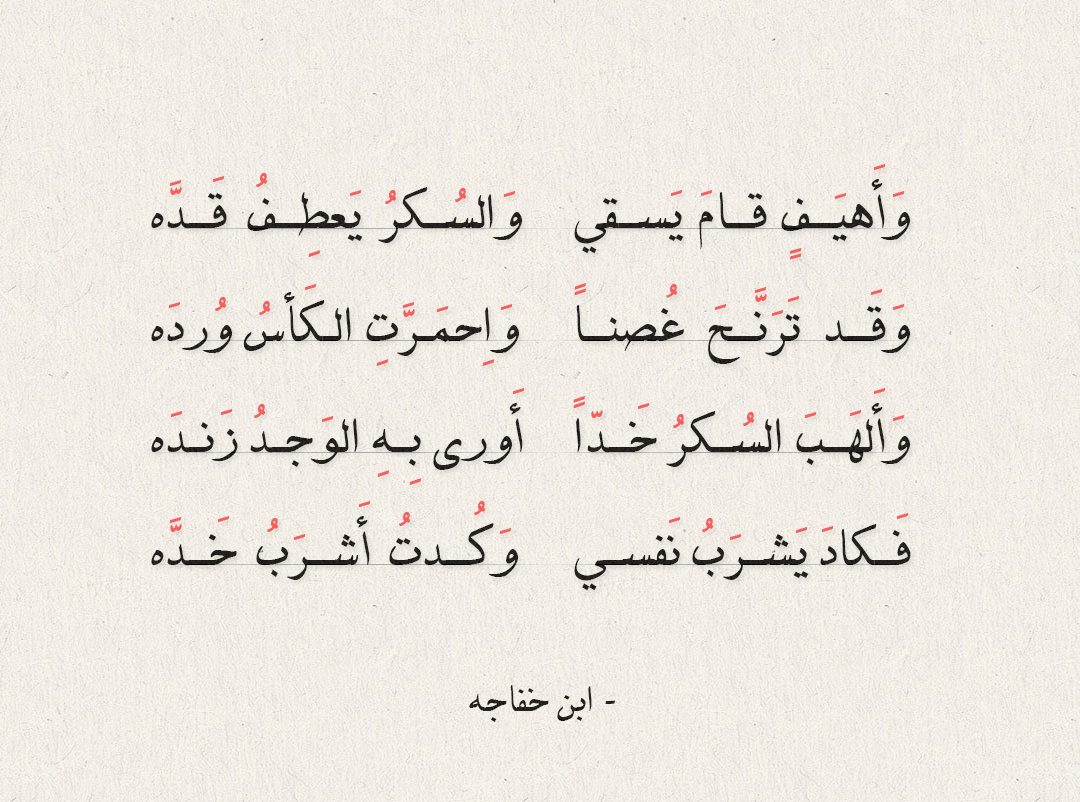 وَأَهيَفٍ قامَ يَسقي وَالسُكرُ يَعطِفُ قَدَّه
وَقَد تَرَنَّحَ غُصناً وَاِحمَرَّتِ الكَأسُ وُردَه
وَأَلهَبَ السُكرُ خَدّاً أَورى بِهِ الوَجدُ زَندَه
فَكادَ يَشرَبُ نَفسي وَكُدتُ أَشرَبُ خَدَّه
- ابن خفاجه